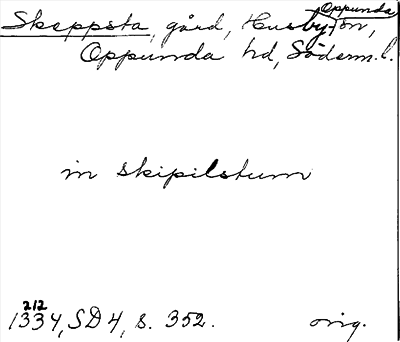 Skeppsta, gård, Husby-Oppunda sn,
Oppunda hd, Söderm. l.
in skipilstum
1334 2/12, SD 4, s. 352. orig.